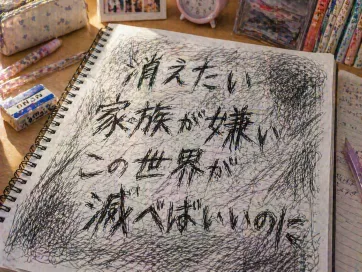 消えたい
家族が嫌い
この世界が
滅べばいいのに